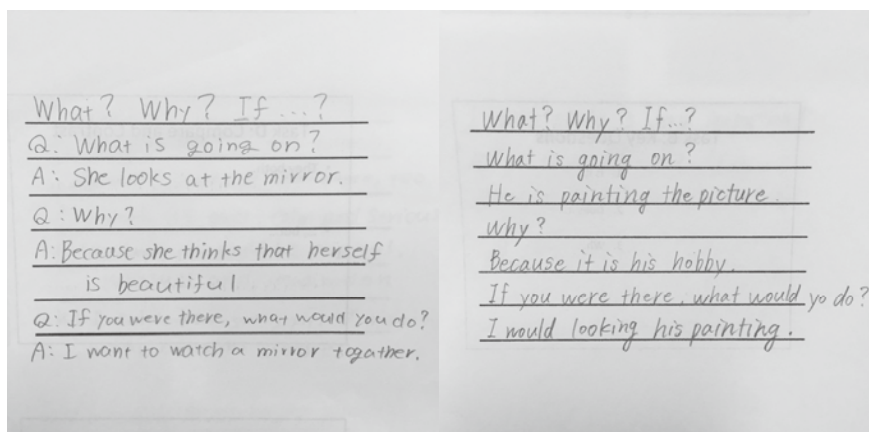 What? Why? If ...?
Q: What is going on?
A: She looks at the mirror.
Q: Why?
A: Because she thinks that herself
is beautiful
Q: If you were there, what would you do?
A: I want to watch a mirror togather.
What? Why? If...?
What is going on?
He is painting the picture.
Why?
Because it is his hobby.
If you were there, what would yo do?
I would looking his painting.